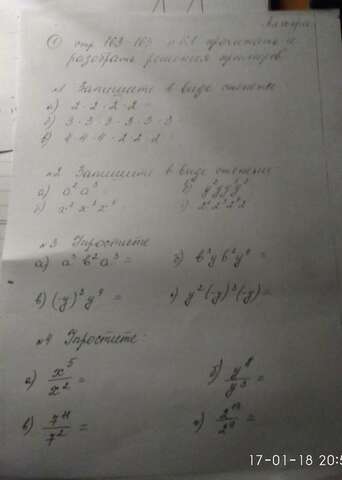 Алгебра
① стр 163-165 п 6.1 прочитать и
разобрать решения примеров
№1 Запишите в виде степени
а) 2·2·2·2 =
б) 3·3·3·3·3·3
в) 4·4·4·2·2·2 =
№2 Запишите в виде степени
а) a² a³ =
б) x² x³ x⁴
№3 Упростите
а) a³ b² a³ =
в) (-y)³ y⁴ =
г) y² (-y)³ (-y) =
№4 Упростите:
а) x⁵/x² =
б) y⁸/y³ =
в) 7¹¹/7² =
17-01-18 20:5